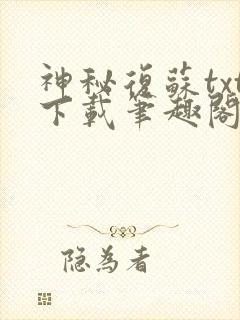 神秘復蘇txt
下載筆趣閣
隐為者